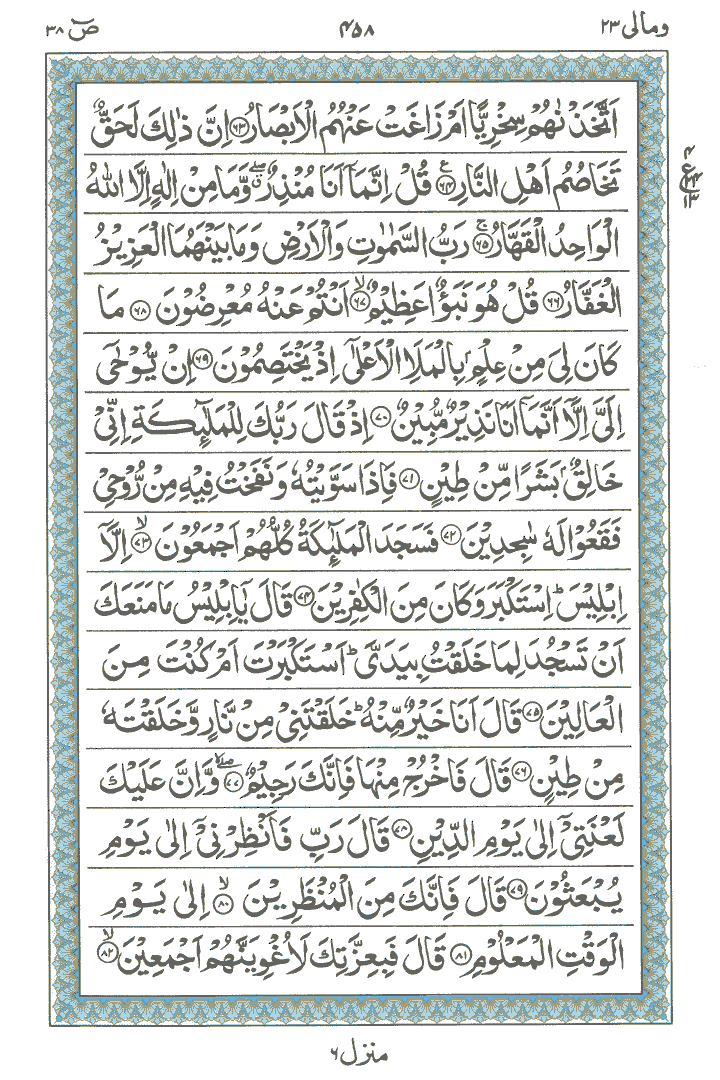 ومالی ۲۳ ۴۵۸ ص ۳۸
اَتَّخَذْنٰهُمْ سِخْرِيًّا اَمْ زَاغَتْ عَنْهُمُ الْاَبْصَارُ ۶۳ اِنَّ ذٰلِكَ لَحَقٌّ
تَخَاصُمُ اَهْلِ النَّارِ ۶۴ قُلْ اِنَّمَاۤ اَنَا مُنْذِرٌ ۖۗ وَّمَا مِنْ اِلٰهٍ اِلَّا اللّٰهُ
الْوَاحِدُ الْقَهَّارُ ۶۵ رَبُّ السَّمٰوٰتِ وَالْاَرْضِ وَمَا بَيْنَهُمَا الْعَزِيْزُ
الْغَفَّارُ ۶۶ قُلْ هُوَ نَبَؤٌا عَظِيْمٌ ۶۷ اَنْتُمْ عَنْهُ مُعْرِضُوْنَ ۶۸ مَا
كَانَ لِيَ مِنْ عِلْمٍۭ بِالْمَلَاِ الْاَعْلٰۤى اِذْ يَخْتَصِمُوْنَ ۶۹ اِنْ يُّوْحٰۤى
اِلَيَّ اِلَّاۤ اَنَّمَاۤ اَنَا نَذِيْرٌ مُّبِيْنٌ ۷۰ اِذْ قَالَ رَبُّكَ لِلْمَلٰٓئِكَةِ اِنِّيْ
خَالِقٌۢ بَشَرًا مِّنْ طِيْنٍ ۷۱ فَاِذَا سَوَّيْتُهٗ وَنَفَخْتُ فِيْهِ مِنْ رُّوْحِيْ
فَقَعُوْا لَهٗ سٰجِدِيْنَ ۷۲ فَسَجَدَ الْمَلٰٓئِكَةُ كُلُّهُمْ اَجْمَعُوْنَ ۷۳ اِلَّاۤ
اِبْلِيْسَ ؕ اِسْتَكْبَرَ وَكَانَ مِنَ الْكٰفِرِيْنَ ۷۴ قَالَ يٰۤاِبْلِيْسُ مَا مَنَعَكَ
اَنْ تَسْجُدَ لِمَا خَلَقْتُ بِيَدَيَّ ؕ اَسْتَكْبَرْتَ اَمْ كُنْتَ مِنَ
الْعَالِيْنَ ۷۵ قَالَ اَنَا خَيْرٌ مِّنْهُ ؕ خَلَقْتَنِيْ مِنْ نَّارٍ وَّخَلَقْتَهٗ
مِنْ طِيْنٍ ۷۶ قَالَ فَاخْرُجْ مِنْهَا فَاِنَّكَ رَجِيْمٌ ۷۷ وَّاِنَّ عَلَيْكَ
لَعْنَتِيْۤ اِلٰى يَوْمِ الدِّيْنِ ۷۸ قَالَ رَبِّ فَاَنْظِرْنِيْۤ اِلٰى يَوْمِ
يُبْعَثُوْنَ ۷۹ قَالَ فَاِنَّكَ مِنَ الْمُنْظَرِيْنَ ۸۰ اِلٰى يَوْمِ
الْوَقْتِ الْمَعْلُوْمِ ۸۱ قَالَ فَبِعِزَّتِكَ لَاُغْوِيَنَّهُمْ اَجْمَعِيْنَ ۸۲
۴
ع
۱۳
منزل ۶